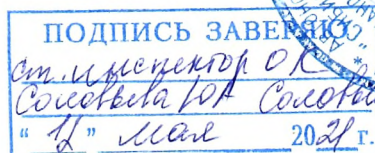 ПОДПИСЬ ЗАВЕРЯЮ
ст. инспектор ОК
Соловьева ЮА Соловь
"12" мая 2021 г.